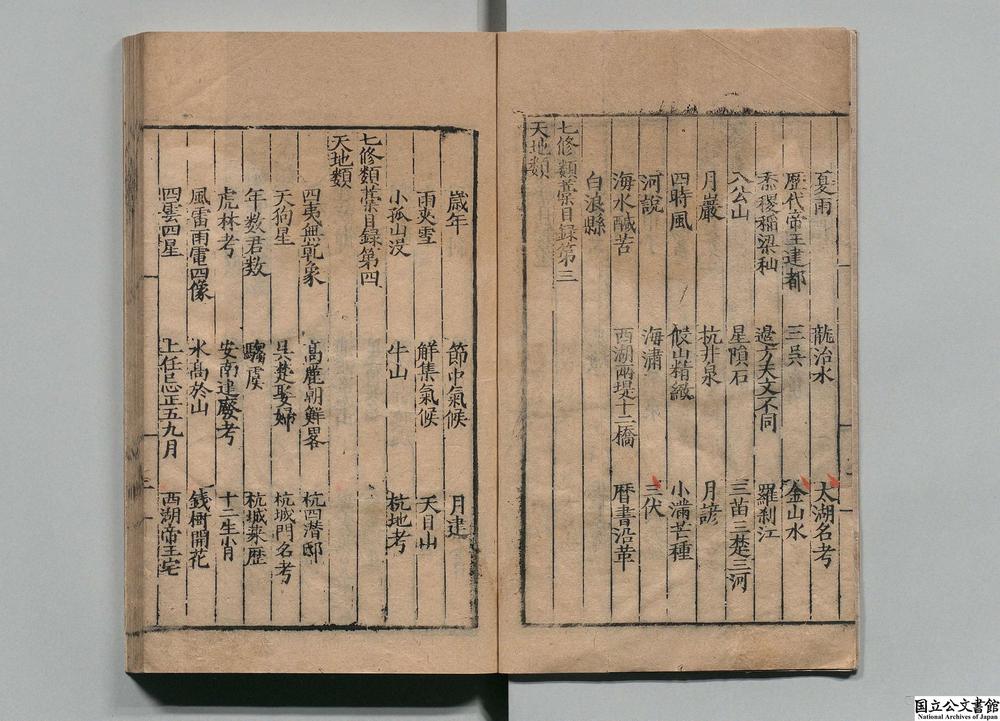 夏雨 龍治水 太湖名考
歷代帝王建都 三吳 金山水
黍稷稲梁秫 邊方天文不同 羅刹江
八公山 星隕石 三苗三楚三河
月巖 杭井泉 月諺
四時風 候山精緻 小滿芒種
河說 海潚 三伏
海水鹹苦 西湖兩堤十二橋 暦書沿革
白浪縣
七修類藁目録第三
天地類
歲年 節中氣候 月建
雨夾雪 解集氣候 天目山
小孤山没 牛山 杭地考
七修類藁目録第四
天地類
四夷無乾象 高麗朝鮮畧 杭四潜邸
天狗星 吳楚娶婦 杭城門名考
年数君数 騶虞 杭城来歴
虎林考 安南建廢考 十二生肖
風雷雨電四像 水高於山 銕樹開花
四雲四星 上任忌正五九月 西湖帝王宅
国立公文書館
National Archives of Japan